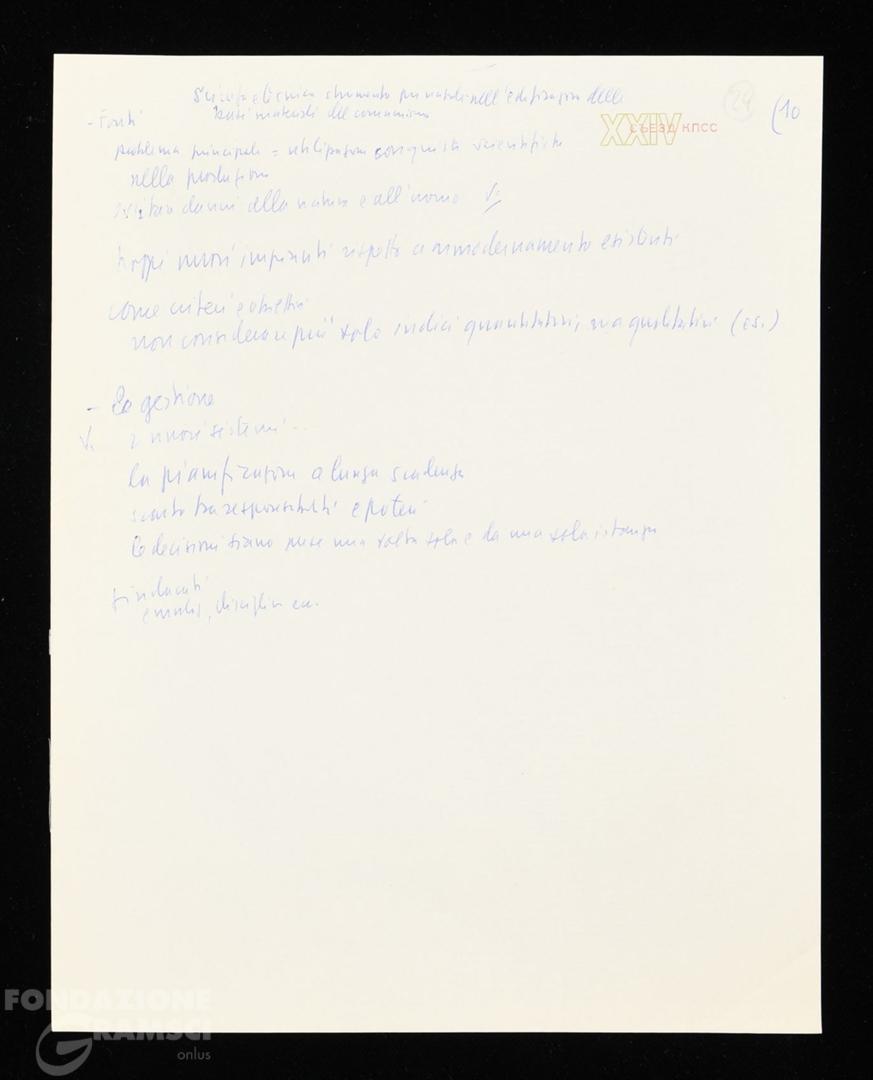 24
(10
XXIV СЪЕЗД КПСС
Scienza e tecnica strumento più nell'edificazione delle
basi materiali del comunismo
- Fonti
problema principale = utilizzazione conquiste scientifiche
nella produzione
danni alla natura e all'uomo V.
troppi nuovi impianti rispetto a ammodernamento esistenti
come criteri e obiettivi
non considerare più solo indici quantitativi, ma qualitativi (es.)
- La gestione
V. 2 nuovi sistemi ...
la pianificazione a lunga scadenza
scarto tra responsabilità e poteri
le decisioni siano prese una volta sola e da una sola istanza
sindacati
disciplina ecc.
FONDAZIONE
GRAMSCI
onlus